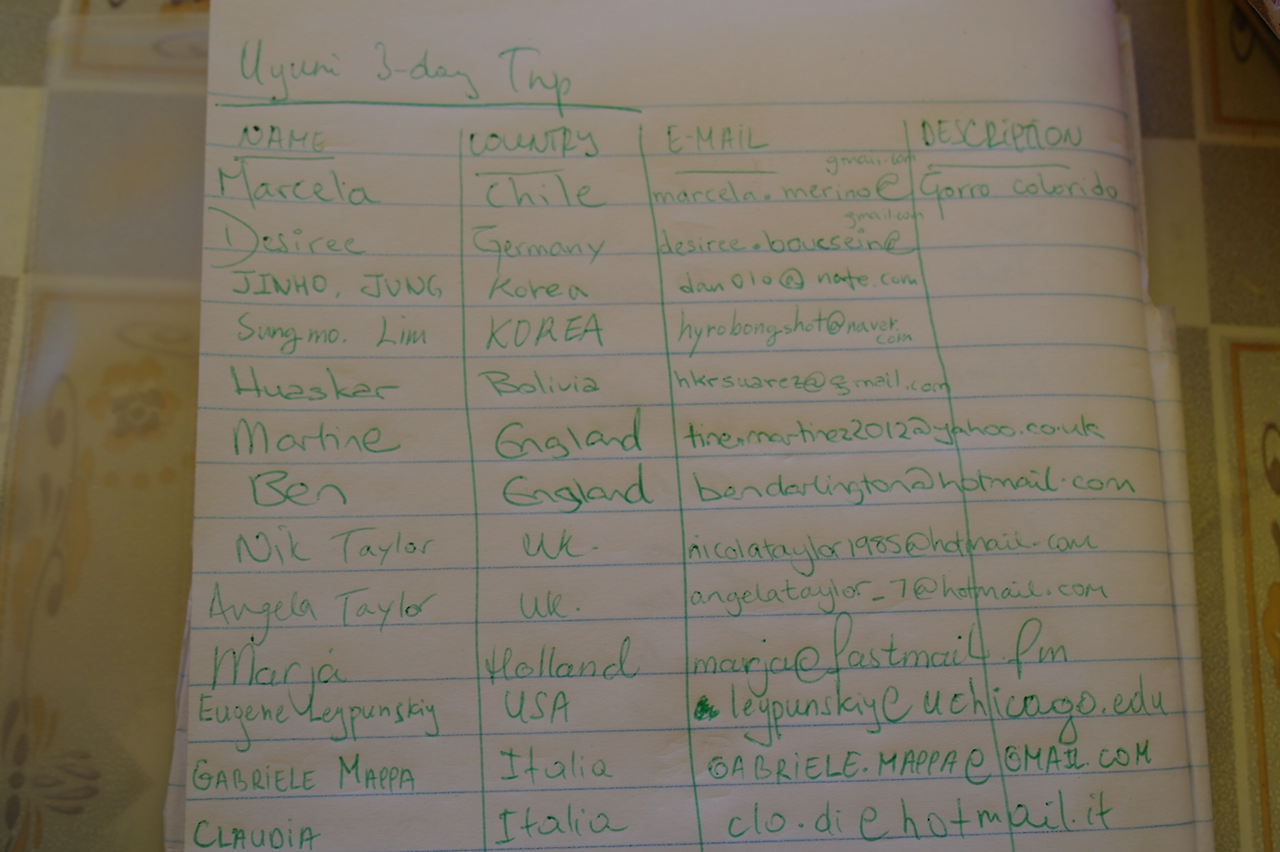 Uyuni 3-day Trip
NAME COUNTRY E-MAIL DESCRIPTION
Marcela Chile marcela.merino@gmail.com Gorro colorido
Desiree Germany desiree.boucsein@gmail.com
JINHO, JUNG Korea dan010@nate.com
Sungmo. Lim KOREA hyrobongshot@naver.com
Huaskar Bolivia hkrsuarez@gmail.com
Martine England tinemartinez2012@yahoo.co.uk
Ben England bendarlington@hotmail.com
Nik Taylor UK. nicolataylor1985@hotmail.com
Angela Taylor UK. angelataylor_7@hotmail.com
Marja Holland marja@fastmail.fm
Eugene Leypunskiy USA leypunskiy@uchicago.edu
GABRIELE MAPPA Italia GABRIELE.MAPPA@GMAIL.COM
CLAUDIA Italia clo.di@hotmail.it